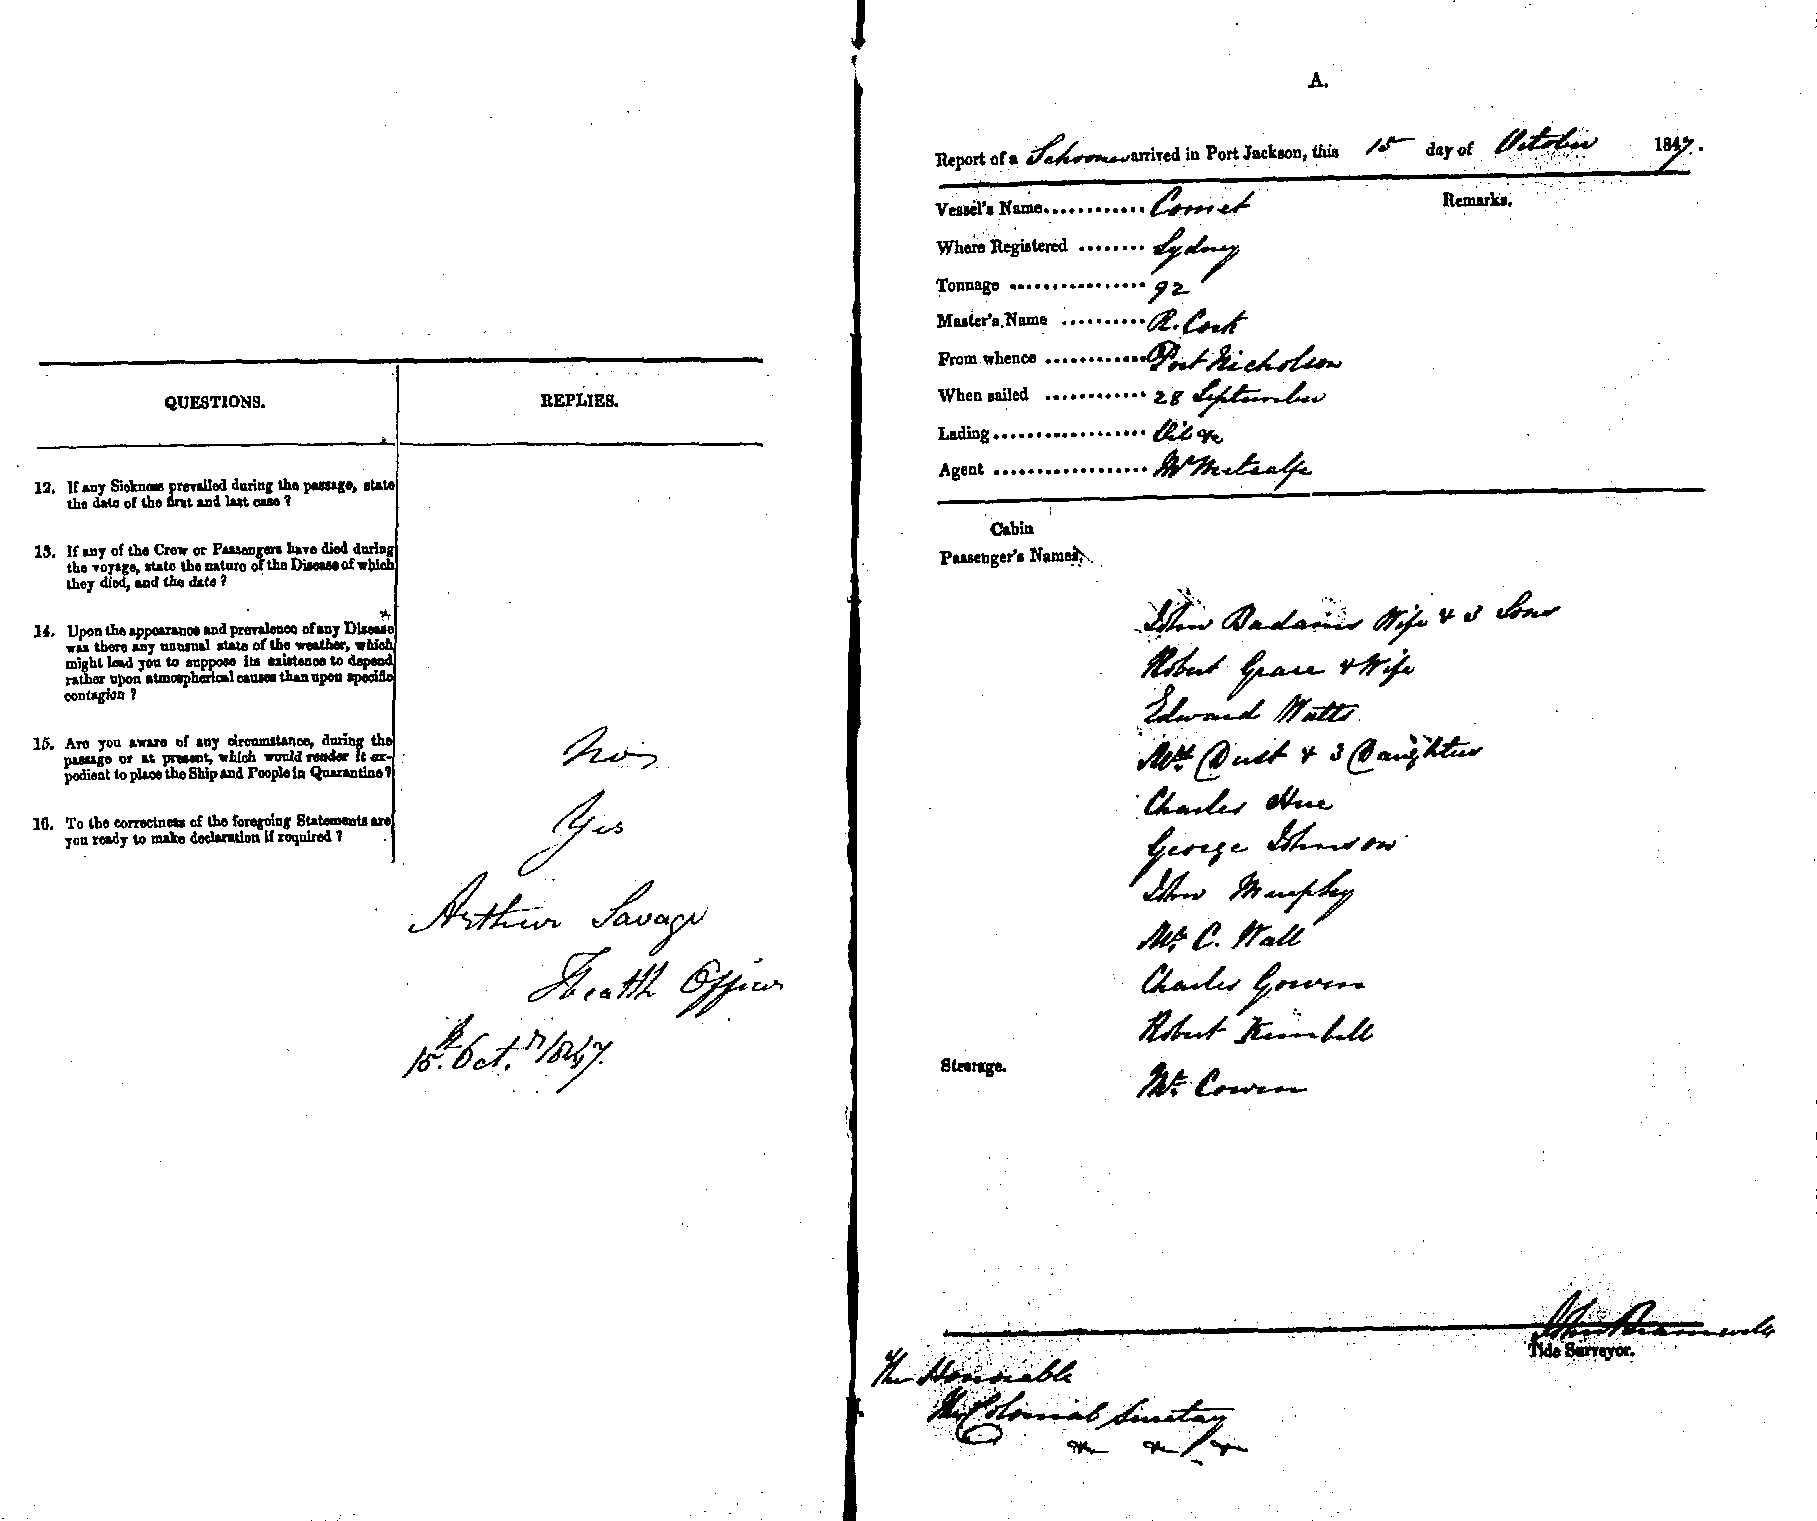 QUESTIONS.
REPLIES.
12. If any Sickness prevailed during the passage, state
the date of the first and last case ?
13. If any of the Crew or Passengers have died during
the voyage, state the nature of the Disease of which
they died, and the date ?
14. Upon the appearance and prevalence of any Disease
was there any unusual state of the weather, which
might lead you to suppose its existence to depend
rather upon atmospherical causes than upon specific
contagion ?
15. Are you aware of any circumstance, during the
passage or at present, which would render it ex-
pedient to place the Ship and People in Quarantine ?
No
16. To the correctness of the foregoing Statements are
you ready to make declaration if required ?
Yes
Arthur Savage
Health Officer
15th Octr. 1847.
A.
Report of a Schooner arrived in Port Jackson, this 15 day of October 1847.
Remarks.
Vessel's Name Comet
Where Registered Sydney
Tonnage 92
Master's Name R. Cork
From whence Port Nicholson
When sailed 28 September
Lading Oil &c
Agent Mr Metcalfe
Cabin
Passenger's Names,
John Badams Wife & 3 Sons
Robert Grace & Wife
Edward Watts
Mrs. Dust & 3 Daughters
Charles Hue
George Johnson
John Murphy
Mr. C. Wall
Charles Gowen
Robert Kimbell
Steerage.
Mr. Cowen
John
Tide Surveyor.
The Honorable
The Colonial Secretary
&c &c &c